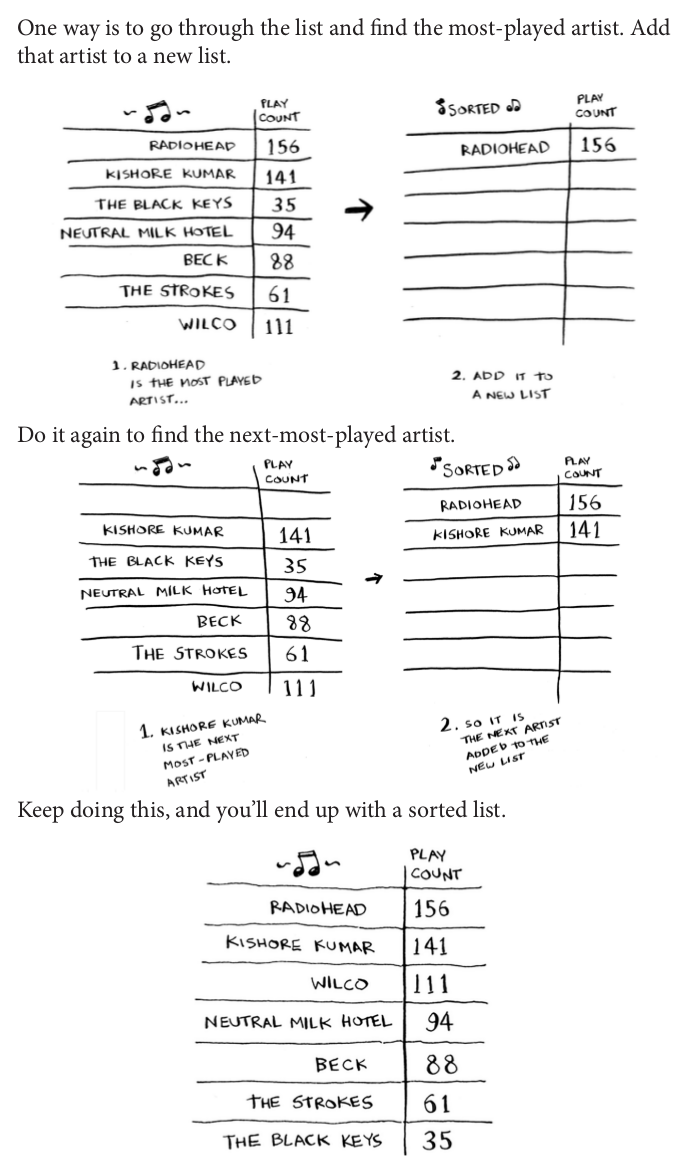 One way is to go through the list and find the most-played artist. Add
that artist to a new list.
PLAY
COUNT
RADIOHEAD 156
KISHORE KUMAR 141
THE BLACK KEYS 35
NEUTRAL MILK HOTEL 94
BECK 88
THE STROKES 61
WILCO 111
1. RADIOHEAD
IS THE MOST PLAYED
ARTIST...
SORTED PLAY
COUNT
RADIOHEAD 156
2. ADD IT TO
A NEW LIST
Do it again to find the next-most-played artist.
PLAY
COUNT
KISHORE KUMAR 141
THE BLACK KEYS 35
NEUTRAL MILK HOTEL 94
BECK 88
THE STROKES 61
WILCO 111
1. KISHORE KUMAR
IS THE NEXT
MOST-PLAYED
ARTIST
SORTED PLAY
COUNT
RADIOHEAD 156
KISHORE KUMAR 141
2. SO IT IS
THE NEXT ARTIST
ADDED TO THE
NEW LIST
Keep doing this, and you’ll end up with a sorted list.
PLAY
COUNT
RADIOHEAD 156
KISHORE KUMAR 141
WILCO 111
NEUTRAL MILK HOTEL 94
BECK 88
THE STROKES 61
THE BLACK KEYS 35